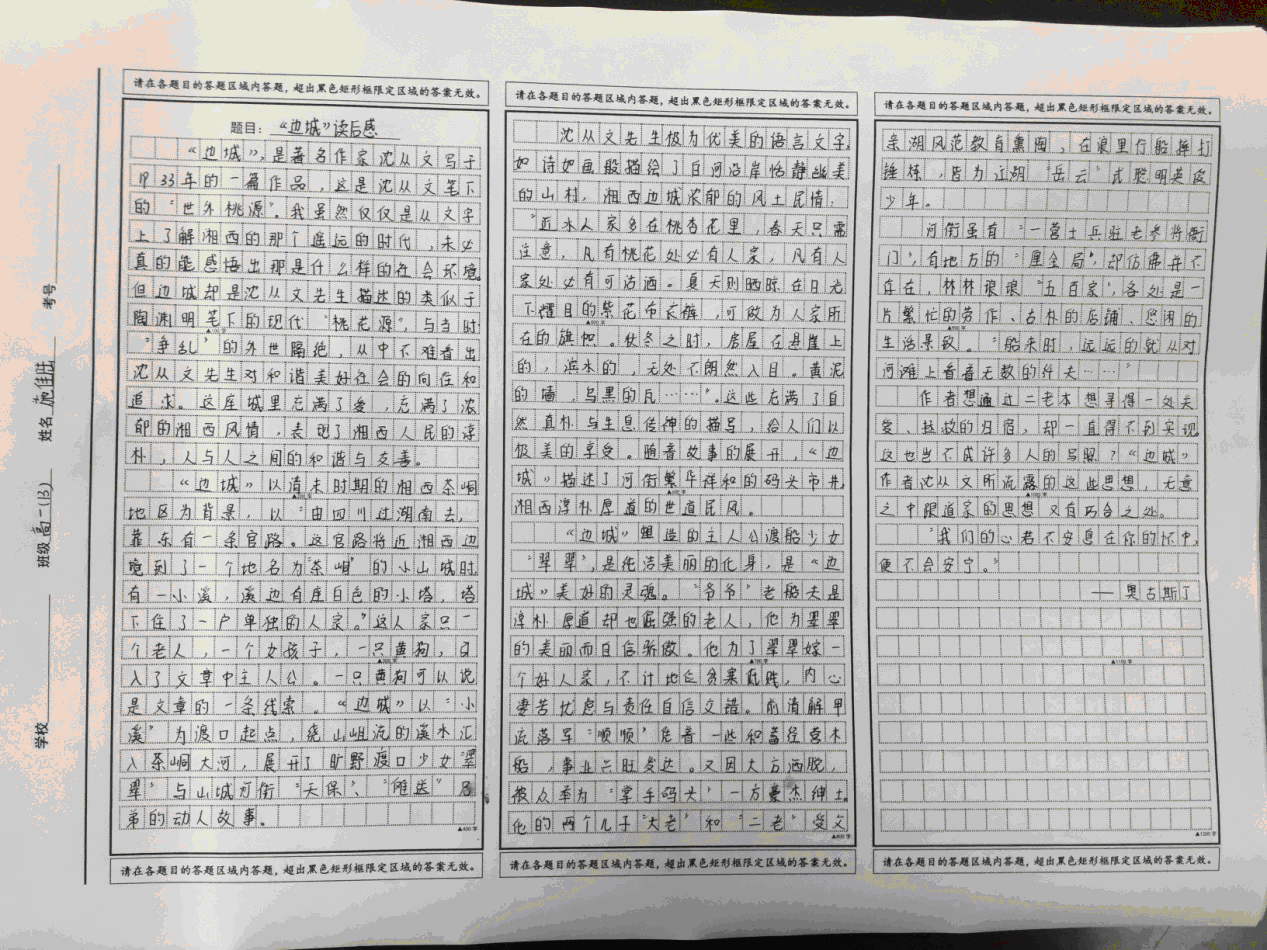 学校
班级 高二(13)
姓名
考号
请在各题目的答题区域内答题，超出黑色矩形框限定区域的答案无效。
题目：“边城”读后感
“边城”，是著名作家沈从文写于
1933年的一篇作品，这是沈从文笔下
的“世外桃源”。我虽然仅仅是从文字
上了解湘西的那个遥远的时代，未必
真的能感悟出那是什么样的社会环境。
但边城却是沈从文先生描述的类似于
陶渊明笔下的现代“桃花源”，与当时
“争乱”的外世隔绝，从中不难看出
沈从文先生对和谐美好社会的向往和
追求。这座城里充满了爱，充满了浓
郁的湘西风情，表现了湘西人民的淳
朴，人与人之间的和谐与友善。
“边城”以清末时期的湘西茶峒
地区为背景，以“由四川过湖南去，
靠东有一条官路。这官路将近湘西边
境到了一个地名为“茶峒”的小山城时，
有一小溪，溪边有座白色的小塔，塔
下住了一户单独的人家。”这人家只一
个老人，一个女孩子，一只黄狗，引
入了文章中主人公。一只黄狗可以说
是文章的一条线索。“边城”以“小
溪”为渡口起点，绕山岨流的溪水汇
入茶峒大河，展开了旷野渡口少女“翠
翠”与山城河街“天保”、“傩送”兄
弟的动人故事。
▲400字
请在各题目的答题区域内答题，超出黑色矩形框限定区域的答案无效。
请在各题目的答题区域内答题，超出黑色矩形框限定区域的答案无效。
沈从文先生极为优美的语言文字，
如诗如画般描绘了白河沿岸恬静幽美
的山村，湘西边城浓郁的风土民情，
“近水人家多在桃杏花里，春天只需
注意，凡有桃花处必有人家，凡有人
家处必有可沽酒。夏天则晒晾在日光
下耀目的紫花布衣裤，可做为人家所
在的旗帜。秋冬之时，房屋在悬崖上
的，滨水的，无处不朗然入目。黄泥
的墙，乌黑的瓦……”。这些充满了自
然真朴与生息传神的描写，给人们以
极美的享受。随着故事的展开，“边
城”描述了河街繁华祥和的码头市井，
湘西淳朴厚道的世道民风。
“边城”塑造的主人公渡船少女
“翠翠”，是纯洁美丽的化身，是“边
城”美好的灵魂。“爷爷”老船夫是
淳朴厚道却也倔强的老人，他为翠翠
的美丽而自信骄傲。他为了翠翠嫁一
个好人家，不计地位贫寒低贱，内心
凄苦忧虑与责任自信交错。前清解甲
流落军“顺顺”凭着一些积蓄经营木
船，事业兴旺发达。又因大方洒脱，
被众奉为“掌手码头”一方豪杰绅士。
他的两个儿子“大老”和“二老”受父
▲800字
请在各题目的答题区域内答题，超出黑色矩形框限定区域的答案无效。
请在各题目的答题区域内答题，超出黑色矩形框限定区域的答案无效。
亲湖风范教育熏陶，在浪里行船摔打
锤炼，皆为江湖“岳云”式聪明英俊
少年。
河街虽有“一营士兵驻老参将衙
门”，有地方的“厘金局”，却仿佛并不
存在，林林琅琅“五百家”，各处是一
片繁忙的劳作、古朴的店铺、悠闲的
生活景致。“船来时，远远的就从对
河滩上看着无数的纤夫……”
作者想通过二老本想寻得一处关
爱、拯救的归宿，却一直得不到实现。
这也岂不成许多人的写照？“边城”
作者沈从文所流露的这些思想，无意
之中跟道家的思想又有巧合之处。
“我们的心若不安息在你的怀中，
便不会安宁。”
——奥古斯丁
▲1100字
▲1200字
请在各题目的答题区域内答题，超出黑色矩形框限定区域的答案无效。